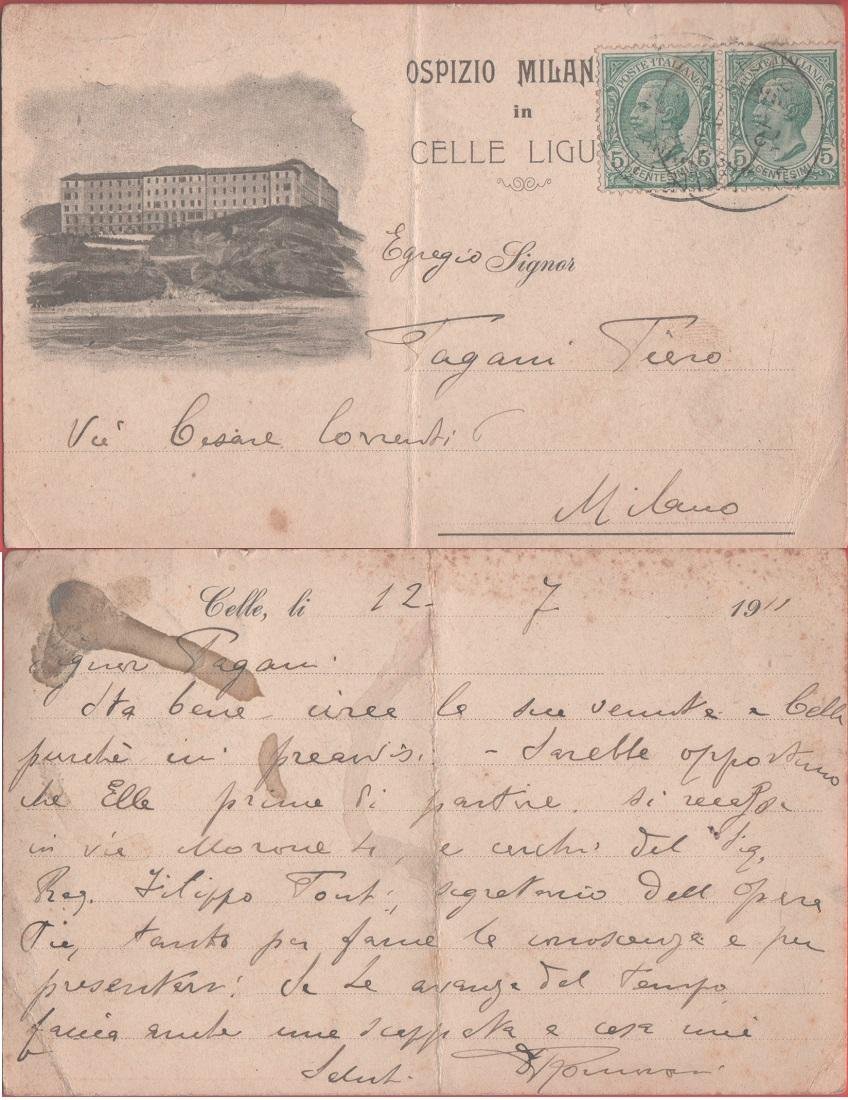 OSPIZIO MILAN
in
CELLE LIGU
POSTE ITALIANE
5 5
CENTESINI
POSTE ITALIANE
5 5
CENTESINI
Egregio Signor
Pagani Piero
Via Cesare Correnti 6
Milano
Celle, li 12 7 1911
Signor Pagani
Sta bene circa la sua venuta a Celle
purchè mi preavvisi. - Sarebbe opportuno
che Ella prima di partire, si recasse
in via Morone 4, e cerchi del Sig.
Rag. Filippo Tonti, segretario dell'Opera
Pia, tanto per farne la conoscenza e per
presentarvi. Se Le avanza del tempo,
faccia anche una scappata a casa mia
Saluti